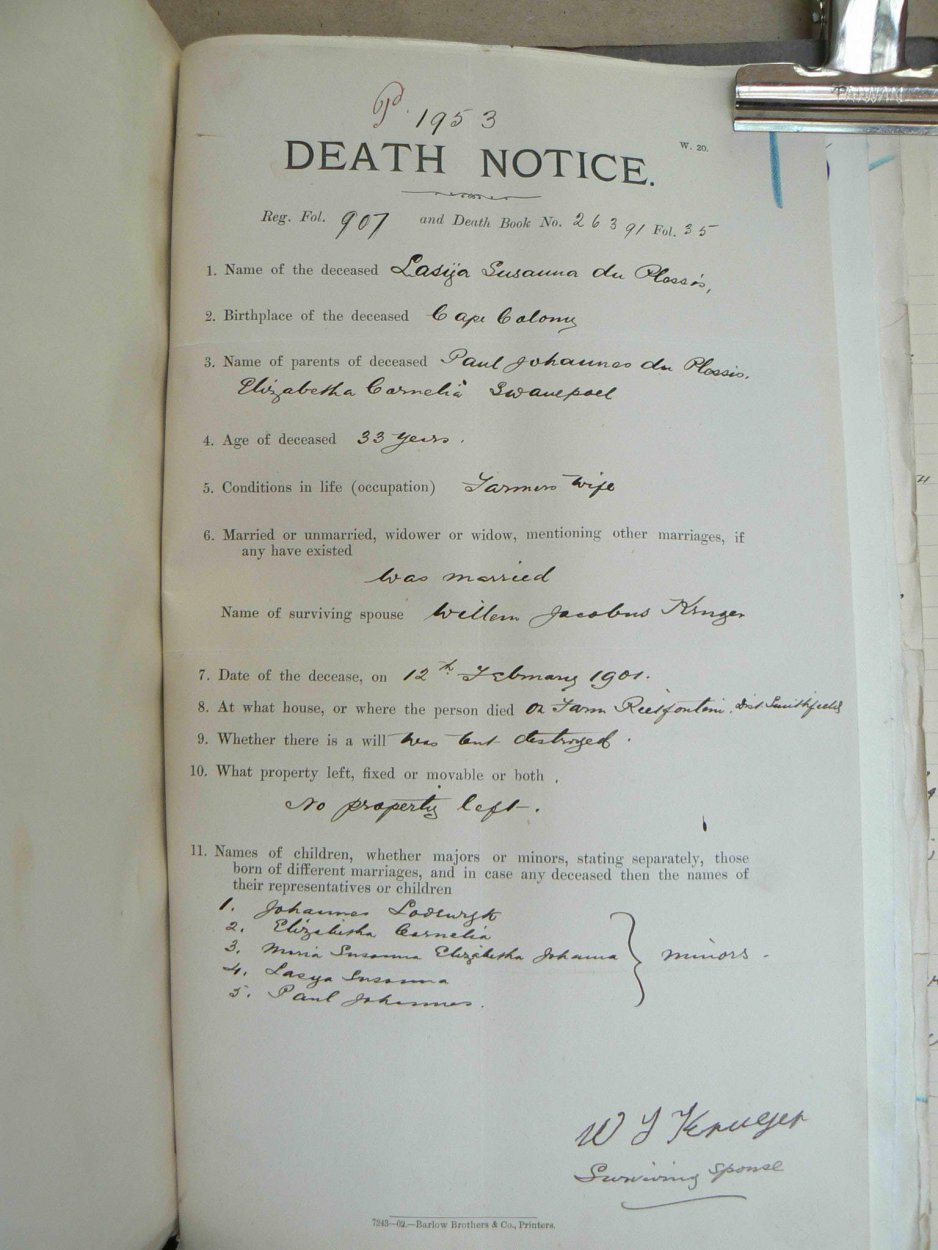 TAIWAN
Pd. 1953
W. 20.
DEATH NOTICE.
Reg. Fol. 907 and Death Book No. 26391 Fol. 35
1. Name of the deceased Lasÿa Susanna du Plessis,
2. Birthplace of the deceased Cape Colony
3. Name of parents of deceased Paul Johannes du Plessis.
Elizabetha Cornelia Swanepoel
4. Age of deceased 33 years.
5. Conditions in life (occupation) Farmers Wife
6. Married or unmarried, widower or widow, mentioning other marriages, if
any have existed
Was married
Name of surviving spouse Willem Jacobus Kruger
7. Date of the decease, on 12th February 1901.
8. At what house, or where the person died On Farm Rietfontein. Dist Smithfield
9. Whether there is a will Was but destroyed.
10. What property left, fixed or movable or both.
No property left.
11. Names of children, whether majors or minors, stating separately, those
born of different marriages, and in case any deceased then the names of
their representatives or children
1. Johannes Lodewyk
2. Elizabetha Cornelia
3. Maria Susanna Elizabetha Johanna } minors.
4. Lasya Susanna
5. Paul Johannes.
W J Krueger
Surviving Spouse
7243—02.—Barlow Brothers & Co., Printers.